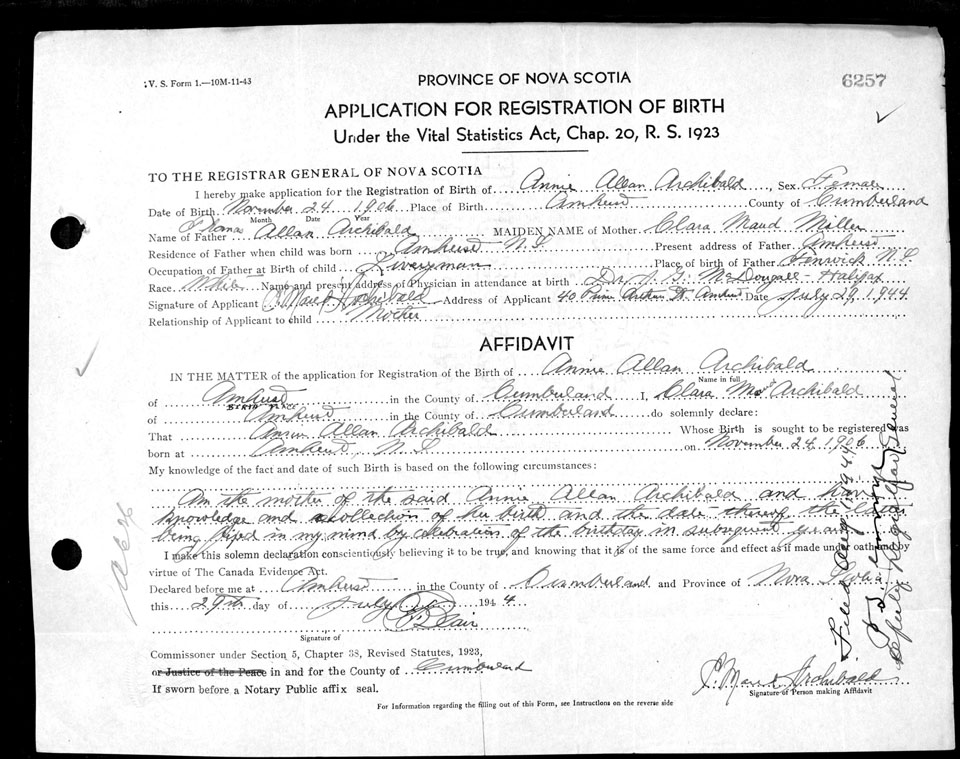 V. S. Form 1.—10M-11-43
PROVINCE OF NOVA SCOTIA
6257
APPLICATION FOR REGISTRATION OF BIRTH
Under the Vital Statistics Act, Chap. 20, R. S. 1923
TO THE REGISTRAR GENERAL OF NOVA SCOTIA
I hereby make application for the Registration of Birth of Annie Allan Archibald, Sex Female
Date of Birth November 24 1906 Place of Birth Amherst County of Cumberland
Month Date Year
Name of Father Allan Archibald MAIDEN NAME of Mother Clara Maud Miller
Residence of Father when child was born Amherst N.S. Present address of Father Amherst
Occupation of Father at Birth of child Liveryman Place of birth of Father Fenwick N.S.
Race White Name and present address of Physician in attendance at birth Dr. J. G. McDougall - Halifax
Signature of Applicant C. Maud Archibald Address of Applicant 40 Prince Arthur St. Amherst Date July 29, 1944
Relationship of Applicant to child Mother
AFFIDAVIT
IN THE MATTER of the application for Registration of the Birth of Annie Allan Archibald
Name in full
of Amherst in the County of Cumberland I, Clara Archibald
BIRTH PLACE
of Amherst in the County of Cumberland do solemnly declare:
That Annie Allan Archibald Whose Birth is sought to be registered was
born at Amherst, N.S. on November 24, 1906
My knowledge of the fact and date of such Birth is based on the following circumstances:
Am the mother of the said Annie Allan Archibald and have
knowledge and recollection of her birth and the date thereof the latter
being fixed in my mind by celebration of the birthday in subsequent years
I make this solemn declaration conscientiously believing it to be true, and knowing that it is of the same force and effect as if made under oath and by
virtue of The Canada Evidence Act.
Declared before me at Amherst in the County of Cumberland and Province of Nova Scotia
this 29th day of July 1944
Blair
Signature of
Commissioner under Section 5, Chapter 38, Revised Statutes, 1923,
or Justice of the Peace in and for the County of Cumberland
If sworn before a Notary Public affix seal.
C. Maud Archibald
Signature of Person making Affidavit
For Information regarding the filling out of this Form, see Instructions on the reverse side
Filed Aug 1944
Deputy Registrar General